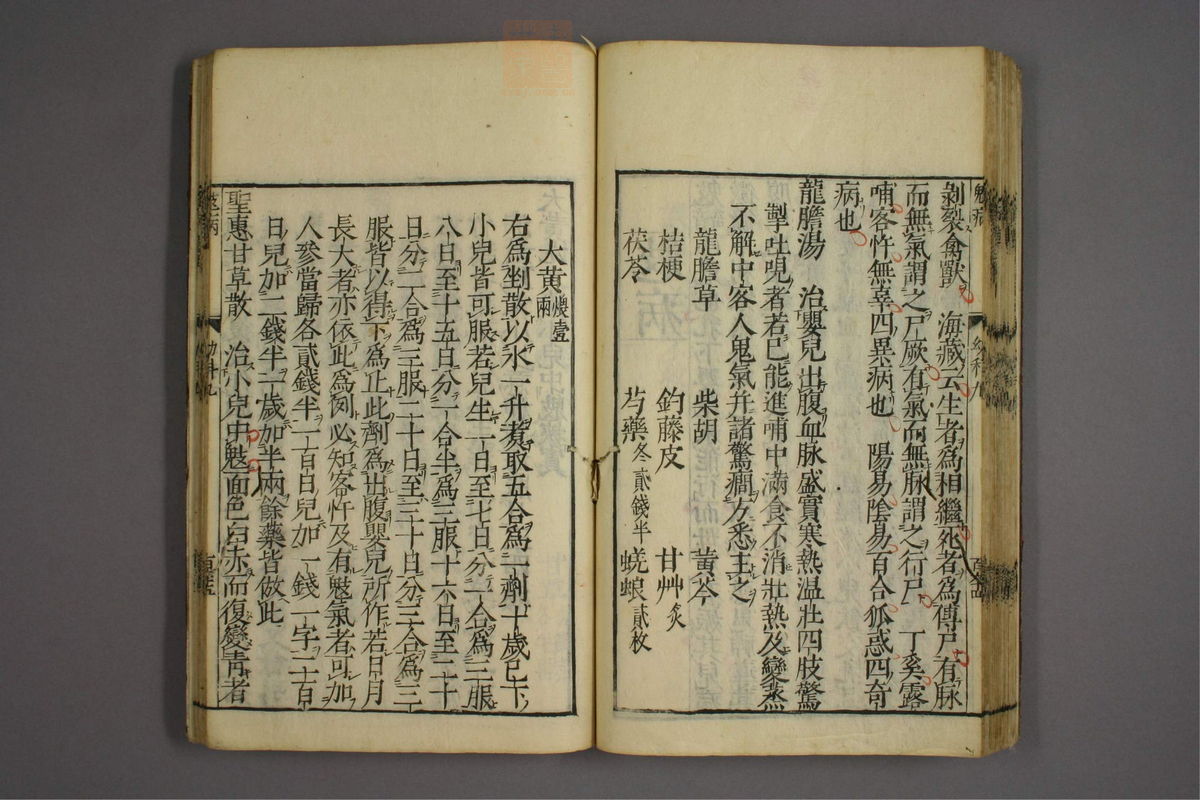 剝裂禽獸 海藏云生者爲相繼死者爲傳尸有脉
而無氣謂之尸厥有氣而無脉謂之行尸 丁奚露
哺客忤無辜四異病也 陽易陰易百合狐惑四奇
病也
龍膽湯 治嬰兒出腹血脉盛實寒熱温壯四肢驚
掣吐哯者若已能進哺中滿食不消壯熱及變蒸
不解中客人鬼氣并諸驚癇方悉主之
龍膽草 柴胡 黃芩
桔梗 釣藤皮 甘艸炙
茯苓 芍藥各貳錢半 蜣蜋貳枚
大黃煨壹兩
右爲剉散以水一升煮取五合爲一劑十歲已下
小兒皆可服若兒生一日至七日分一合爲三服
八日至十五日分一合半爲三服十六日至二十
日分二合爲三服二十日至三十日分三合爲三
服皆以得下爲止此劑爲出腹嬰兒所作若日月
長大者亦依此爲例必知客忤及有鬾氣者可加
人參當歸各貳錢半一百日兒加一錢一字二百
日兒加二錢半一歲加半兩餘藥皆倣此
聖惠甘草散 治小兒中鬾面色白赤而復變青者